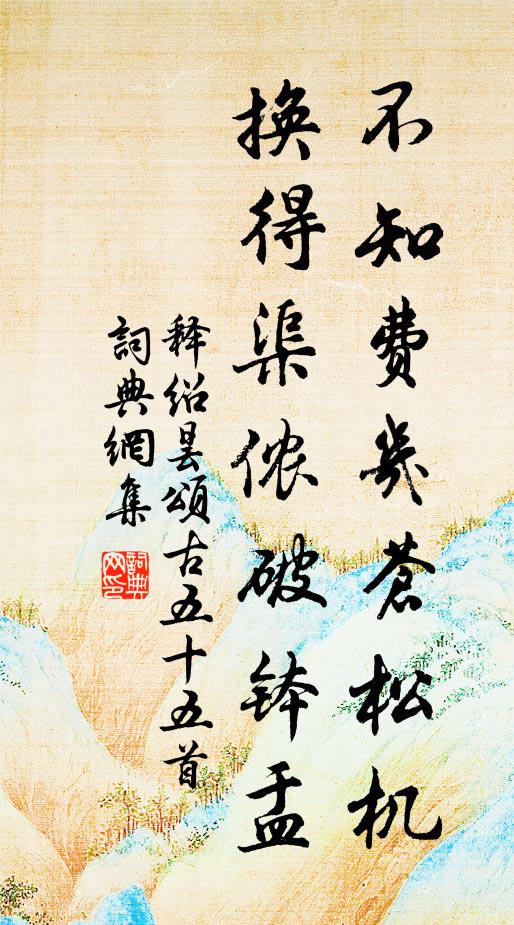 不知費幾蒼松机
換得渠侬破钵盂
释绍昙頌古五十五首
詞典網集
詞典網印